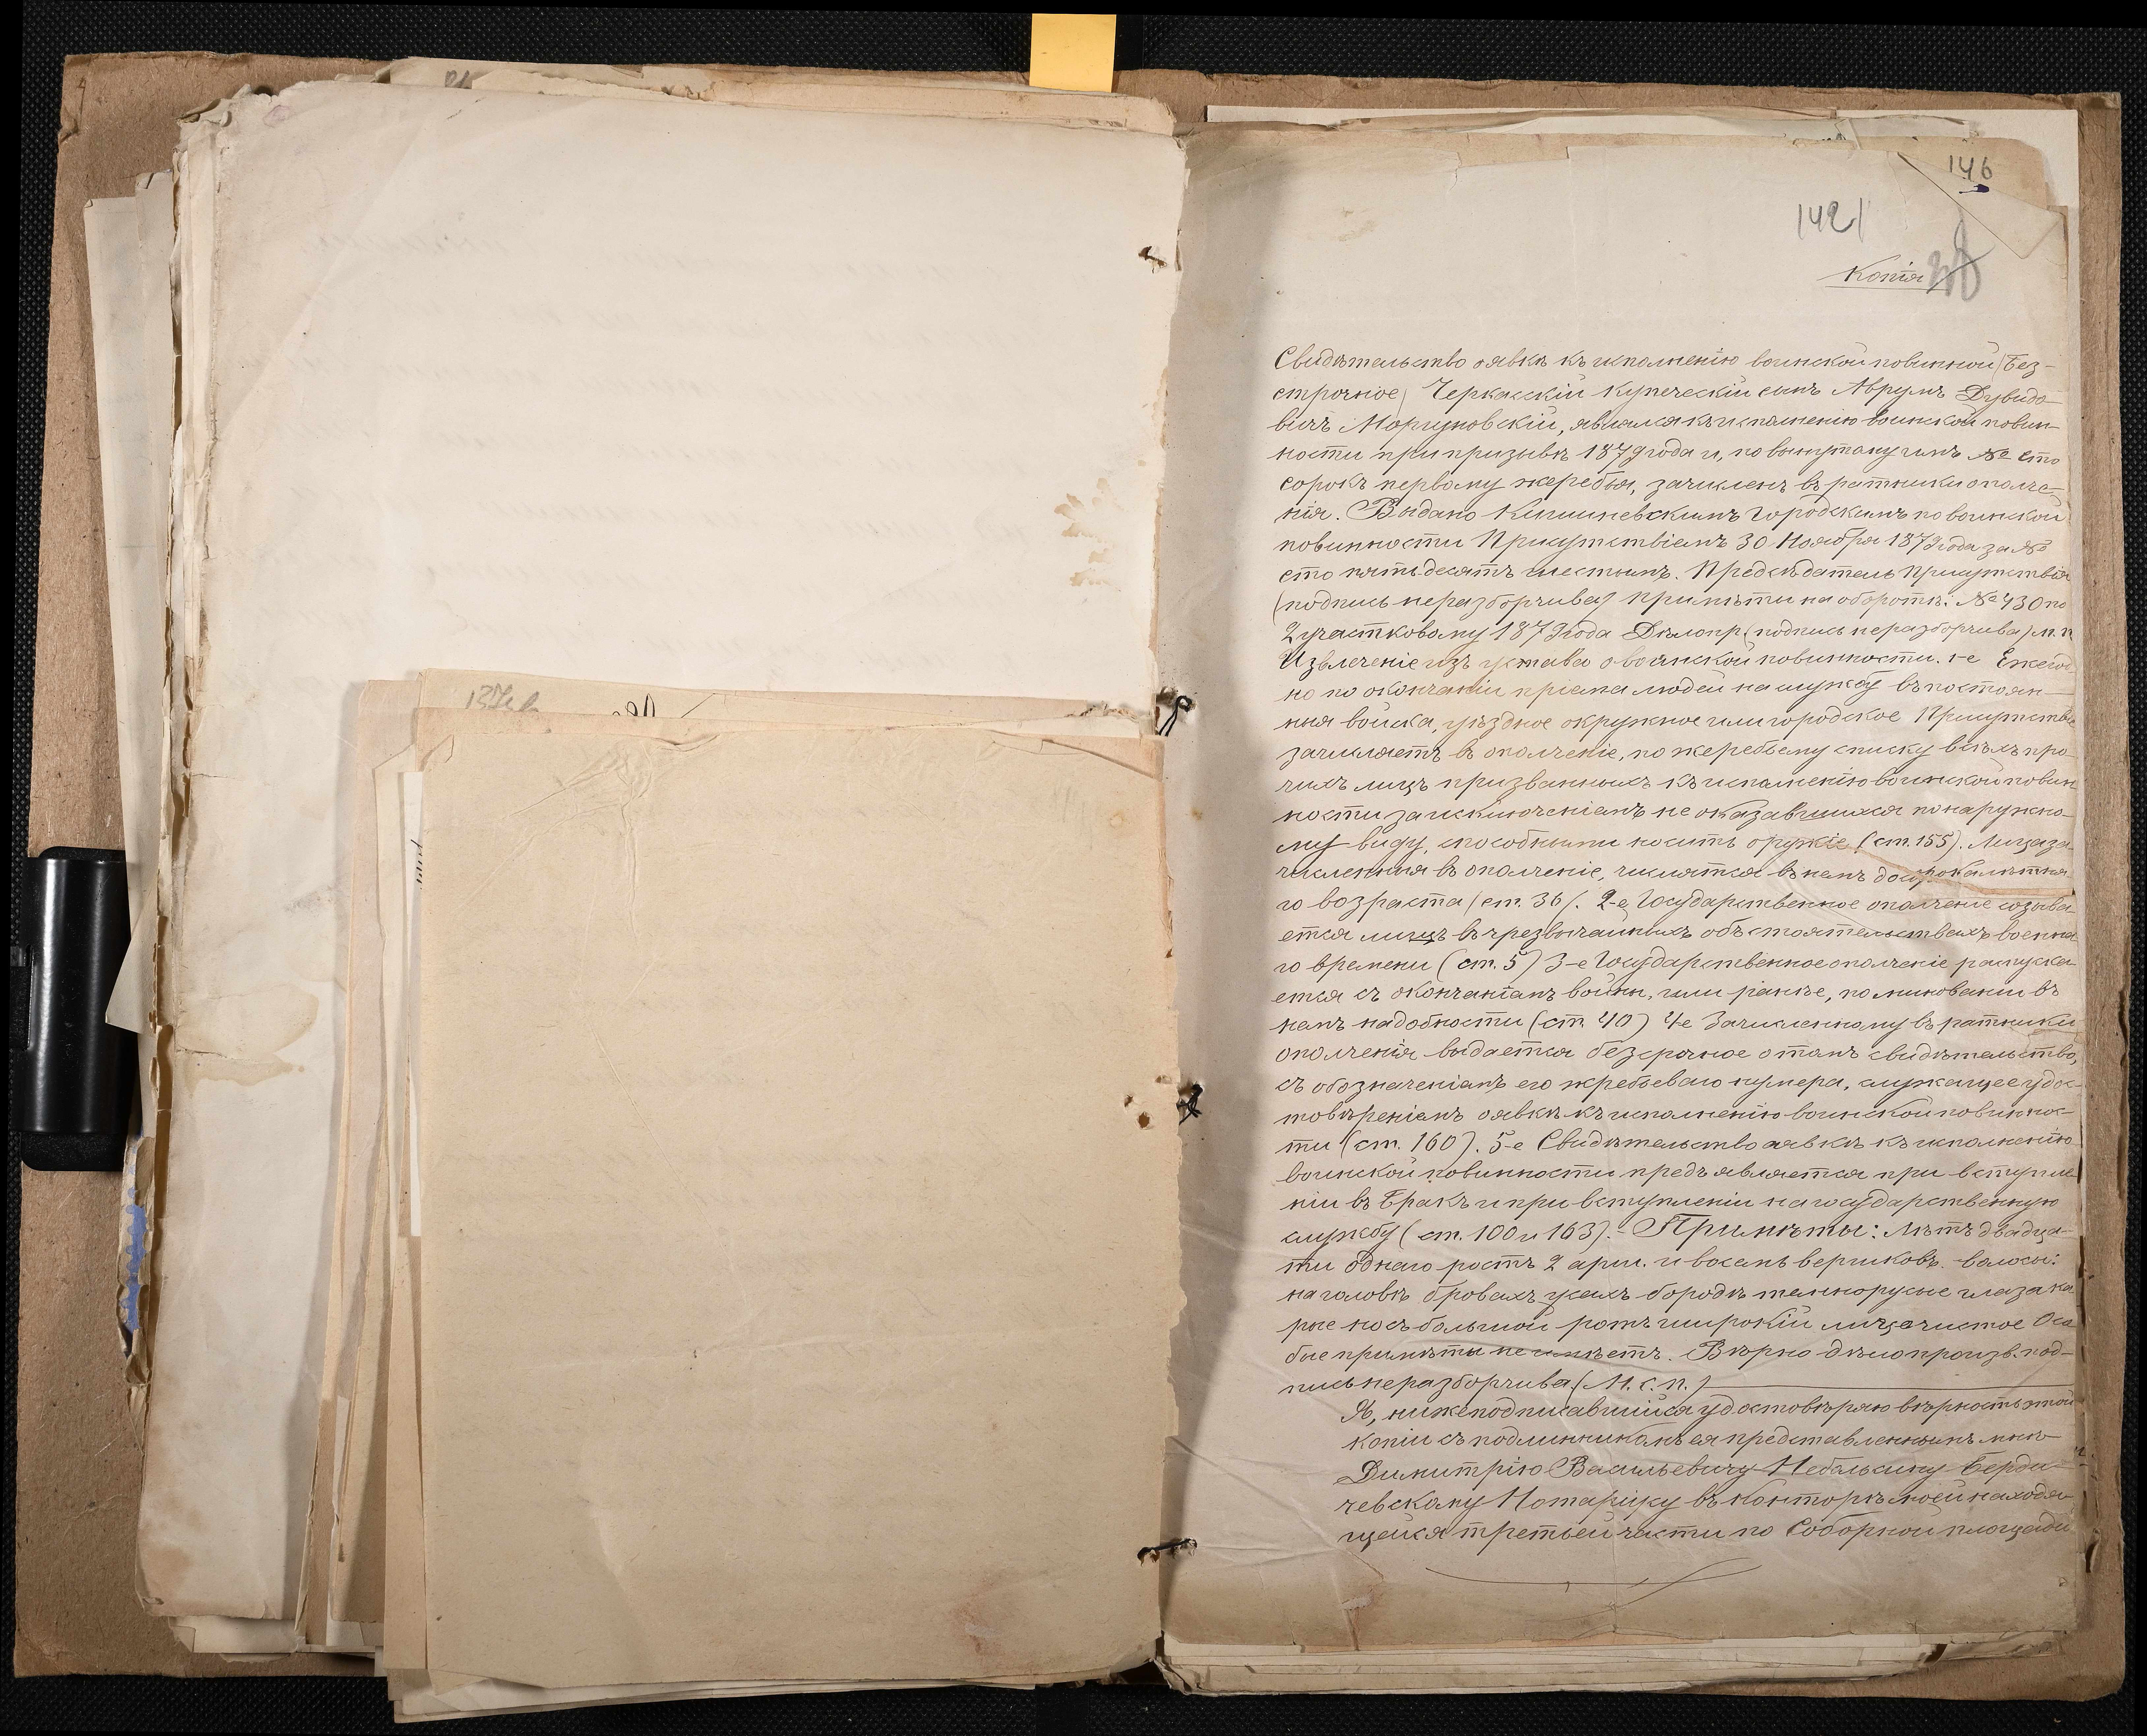 146
1421
Копія
Свидѣтельство о явкѣ къ исполненію воинской повинной (без-
строчное) Черкасскій купеческій сынъ Аврумъ Дувидо-
вичъ Моргуновскій, являлся къ исполненію воинской повин-
ности при призывѣ 1879 года и, по вынутому имъ № сто
сорокъ первому жеребья, зачисленъ въ ратники ополче-
нія. Выдано Кишиневскимъ Городскимъ по воинской
повинности Присутствіемъ 30 Ноября 1879 года за №
сто пятьдесятъ шестымъ. Предсѣдатель Присутствія
(подпись неразборчива) примѣты на оборотѣ: № 430 по
2 участковому 1879 года Дѣлопр (подпись неразборчива) м. п
Извлеченіе изъ устава о воинской повинности. 1-е Ежегод
но по окончаніи пріема людей на службу въ постоян-
ныя войска, уѣздное окружное или городское Присутствіе
зачисляетъ въ ополченіе, по жеребьему списку всѣхъ про-
чихъ лицъ призванныхъ къ исполненію воинской повин
ности за исключеніемъ не оказавшихся по наружно-
му виду, способными носить оружіе (ст. 155). Лица за-
численныя въ ополченіе, числятся въ немъ до сорокалѣтня-
го возраста (ст. 36). 2-е Государственное ополченіе созыва-
ется лишь въ чрезвычайныхъ обстоятельствахъ военна-
го времени (ст. 5) 3-е Государственное ополченіе распуска-
ется съ окончаніемъ войны, или ранѣе, по минованіи въ
немъ надобности (ст. 40) 4-е Зачисленному въ ратники
ополченія выдается безсрочное о томъ свидѣтельство,
съ обозначеніемъ его жребьеваго нумера, служащее удос-
товѣреніемъ о явкѣ къ исполненію воинской повиннос-
ти (ст. 160). 5-е Свидѣтельство о явкѣ къ исполненію
воинской повинности предъявляется при вступле
ніи въ бракъ и при вступленіи на государственную
службу (ст. 100 и 163). - Примѣты: лѣтъ двадца-
ти однаго ростъ 2 арш. и восемь вершковъ. волосы:
на головѣ бровахъ усахъ бородѣ темнорусые глаза ка
рые носъ большой ротъ широкій лицо чистое Осо
бые примѣты не имѣетъ. Вѣрно дѣлопроизв. под-
пись неразборчива (М. с. п.)
Я, нижеподписавшійся удостовѣряю вѣрность этой
копіи съ подлинникомъ ея представленнымъ мнѣ
Димитрію Васильевичу Небольсину Берди-
чевскому Нотаріусу въ конторѣ моей находя-
щейся третьей части по Соборной площади